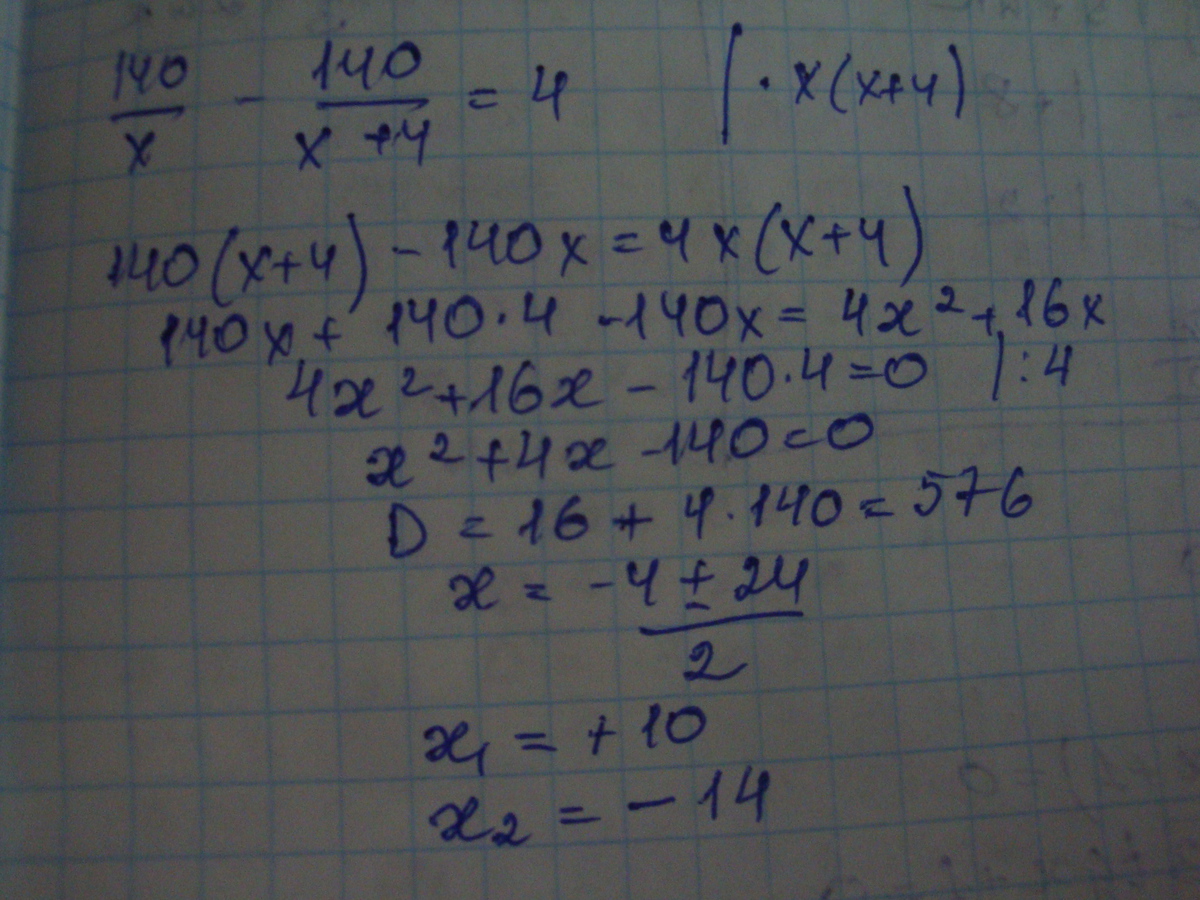 140/x - 140/(x+4) = 4 | · x(x+4)
140(x+4) - 140x = 4x(x+4)
140x + 140·4 - 140x = 4x² + 16x
4x² + 16x - 140·4 = 0 | :4
x² + 4x - 140 = 0
D = 16 + 4·140 = 576
x = (-4 ± 24)/2
x₁ = +10
x₂ = -14